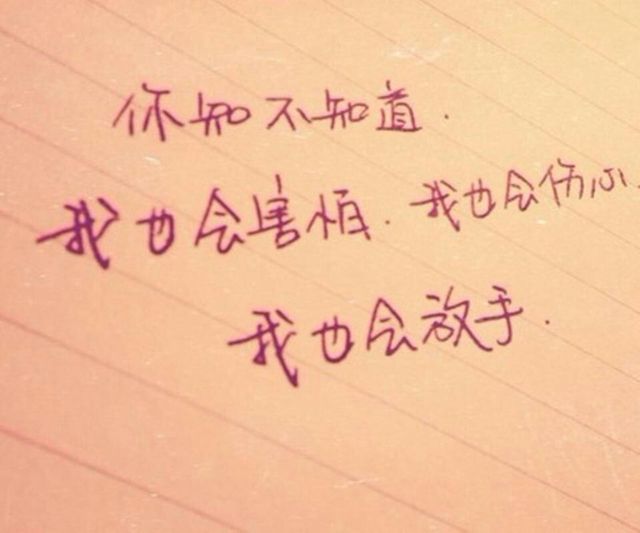 你知不知道.
我也会害怕.我也会伤心.
我也会放手.